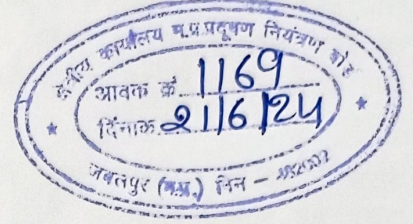 क्षेत्रीय कार्यालय म.प्र.प्रदूषण नियंत्रण बोर्ड
आवक क्रं 1169
दिनांक 21/6/24
जबलपुर (म.प्र.) पिन -